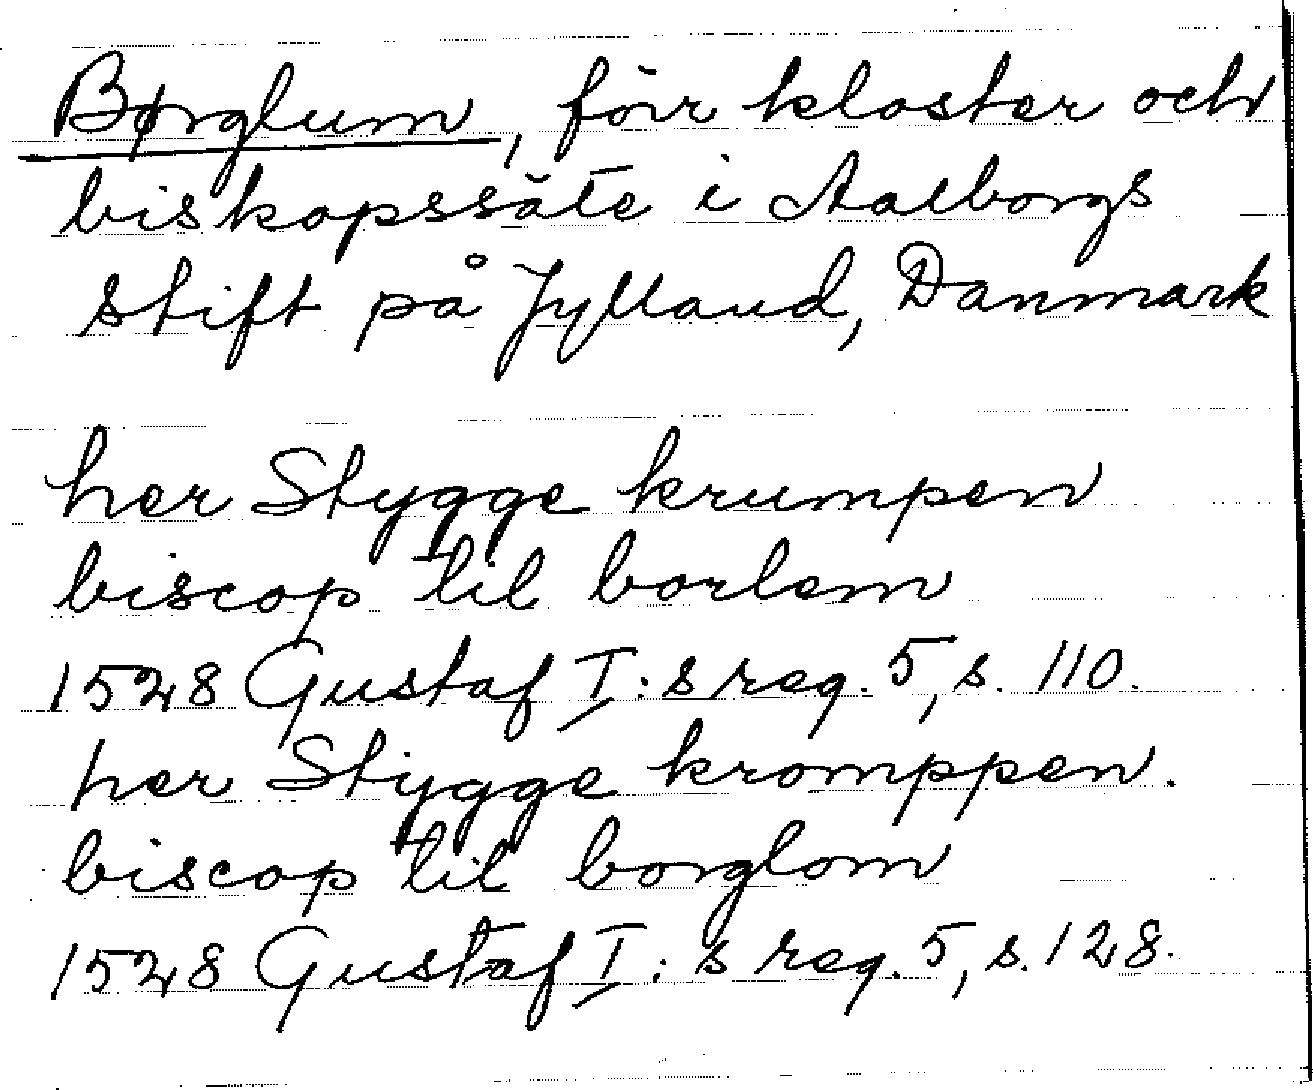 Børglum, förr kloster och
biskopssäte i Aalborgs
stift på Jylland, Danmark
her Stygge krumpen
biscop til borlem
1528 Gustaf I:s reg. 5, s. 110.
her Stygge kromppen.
biscop til borglom
1528 Gustaf I:s reg. 5, s. 128.